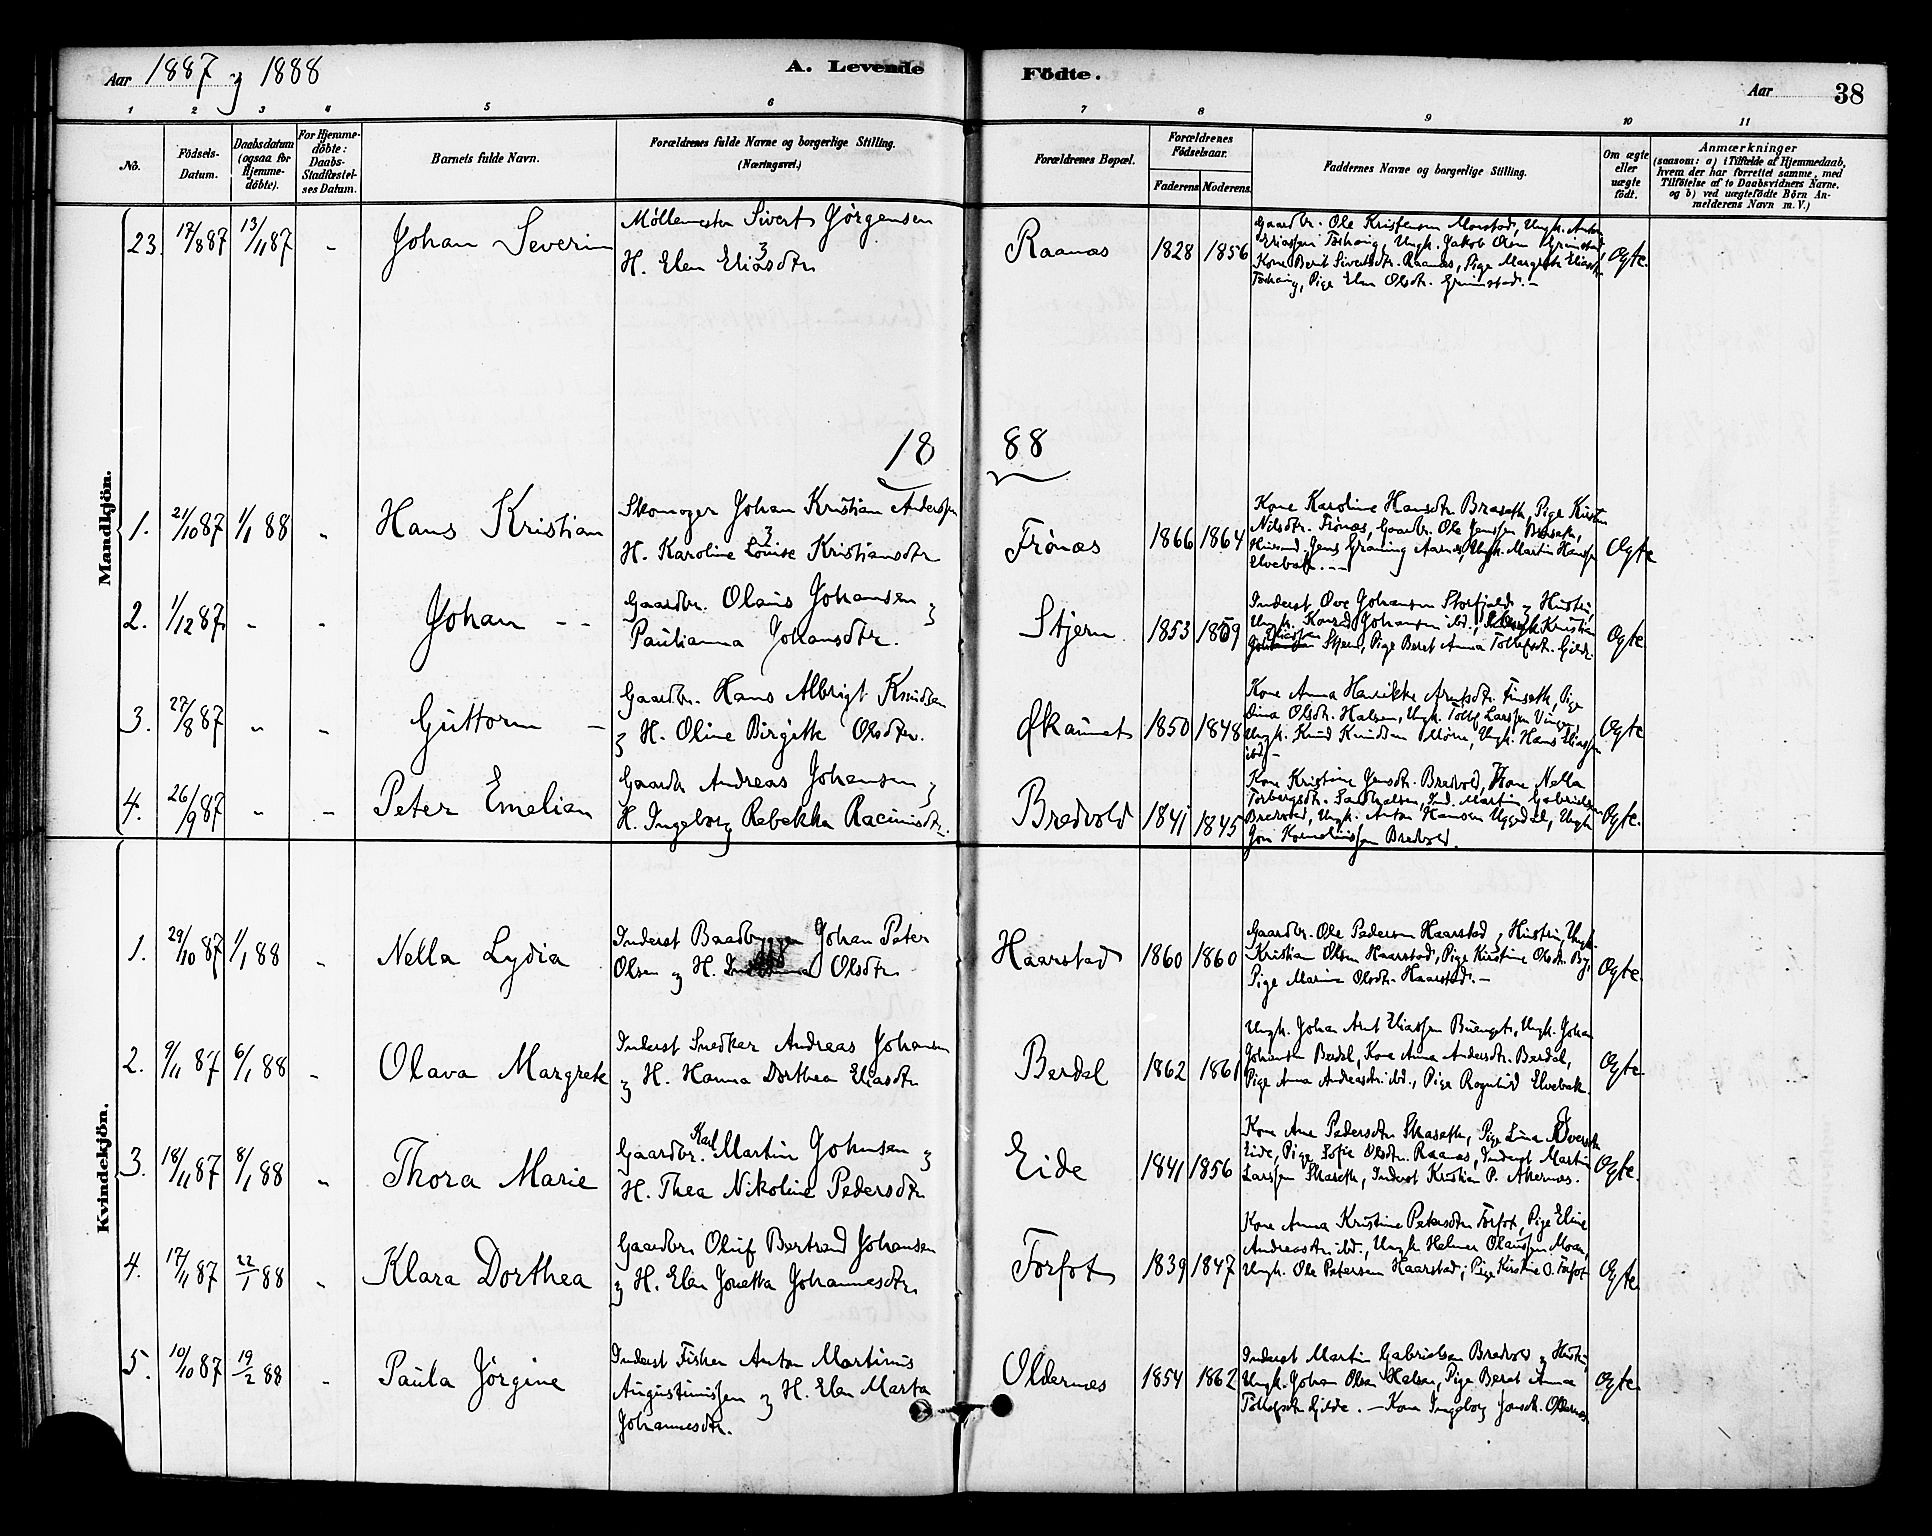 Aar 1887 og 1888
A. Levende Födte.
Aar 38
1 2 3 4 5 6 7 8 9 10 11
No. Födsels-Datum. Daabsdatum (ogsaa for Hjemme-döbte). For Hjemme-döbte: Daabs-Stadfæstel-ses Datum. Barnets fulde Navn. Forældrenes fulde Navne og borgerlige Stilling. (Næringsvei.) Forældrenes Bopæl. Forældrenes Födselsaar. Faderens Moderens. Faddernes Navne og borgerlige Stilling. Om ægte eller uægte födt. Anmærkninger (saasom: a) i Tilfælde af Hjemmedaab, hvem der har forrettet samme, med Tilföielse af to Daabsvidners Navne, og b) ved uægtefödte Börn An-melderens Navn m. V.)
Mandkjön.
23. 17/8 87 13/11 87 - Johan Severin
Möllemester Sivert Jörgensen
H. Elen Eliasdtr
Raanæs 1828 1856
Gaardbr. Ole Kristensen Morstad, Ungk. Anton
Eliassen Forhaug, Ungk. Jakob Olsen Grimstad,
Kone Berit Sivertsdtr. Raanæs, Pige Margrete Eliasdtr
Forhaug, Pige Elen Olsdtr. Grimstad. -
Ogte.
1888
1. 21/10 87 1/1 88 " Hans Kristian
Skomager Johan Kristian Anderssen
H. Karoline Louise Kristiansdtr
Frönæs 1866 1864
Kone Karoline Hansdtr. Braseth, Pige Kirsten
Nilsdtr. Frönæs, Gaardbr. Ole Jenssen Braseth,
Jens Graning Aarnes, Ungk. Martin Hanssen
Elvebak. --
Ogte
2. 1/12 87. " " Johan --
Gaardbr. Olaus Johansen og
Paulianna Johansdtr.
Stjern 1853 1859
Inderst Ove Johansen Storfjeld og Hustru,
Ungk. Konrad Johansen ibd., Ungk Kristian
Eliassen Stjern, Pige Beret Anna Tollefsdtr. Gjilde.
Ogte
3. 27/8 87 " " Guttorm -
Gaardbr. Hans Albrigt Knudsen
og H. Oline Birgitte Olsdtr.
Økaunet 1850 1848
Kone Anna Henrikke Arntsdtr. Finseth, Pige
Dina Olsdtr. Halsen, Ungk. Tollef Larssen
Ungk. Knud Knudsen Möru, Ungk. Hans Eliassen
ibd -
Ogte
4. 26/9 87 " - Peter Emelian
Gaardbr Andreas Johansen og
H. Ingeborg Rebekka Racinisdtr.
Bredvold 1841 1845
Kone Kristine Jensdtr. Bredvold, Kone Nella
Torbergsdtr. Sandhalsen, Ind. Martin Gabrielsen
Bredvold, Ungk. Anton Hansen Uggedal, Ungk
Jon Korneliussen Bredvold.
Ogte.
Kvindekjön.
1. 29/10 87 1/1 88 " Nella Lydia
Inderst Baadbygger Johan Peter
Olsen og H. Olsdtr
Haarstad 1860 1860
Gaardbr. Ole Pedersen Haarstad og Hustru, Ungk.
Kristian Olsen Haarstad, Pige Kirstine Olsdtr. By,
Pige Marine Olsdtr. Haarstad. -
Ogte.
2. 9/11 87 6/1 88 " Olava Margrete
Inderst Snedker Andreas Johansen
og H. Hanna Dorthea Eliasdtr
Berdal 1862 1861
Ungk. Johan Arnt Eliassen Buenget, Ungk. Johan
Johansen Berdal, Kone Anna Andersdtr. Berdal,
Pige Anna Andreasdtr. ibd., Pige Ragnhild Elvebak.
Ogte.
3. 18/11 87 8/1 88 " Thora Marie
Gaardbr. Karl Martin Johnsen og
H. Thea Nikoline Pedersdtr
Eide 1841 1856
Kone Ane Pedersdtr Skaseth, Pige Lina
Eide, Pige Sofie Olsdtr. Raanæs, Inderst Martin
Larssen Skaseth, Inderst Kristian P. Akernæs.
Ogte.
4. 17/11 87 22/1 88 " Klara Dorthea
Gaardbr. Oluf Bertrand Johansen
og H. Elen Jonetta Johannesdtr
Forfot 1839 1847
Kone Anna Kristine Petersdtr Forfot, Pige Eline
Andreasdtr. ibd., Ungk. Helmer Olaussen Moan,
Ungk. Ole Petersen Haarstad, Pige Kirstine O. Forfot
Ogte
5. 10/10 87 19/2 88 " Paula Jörgine
Inderst Fisker Anton Martinus
Augustinussen og H. Elen Marta
Johannesdtr.
Oldernæs 1854 1862
Inderst Martin Gabrielsen Bredvold og Hustru,
Ungk. Johan Olsen Halsen, Pige Beret Anna
Tollefsdtr Gjilde. - Kone Ingeborg Jonsdtr. Oldernæs
Ogte